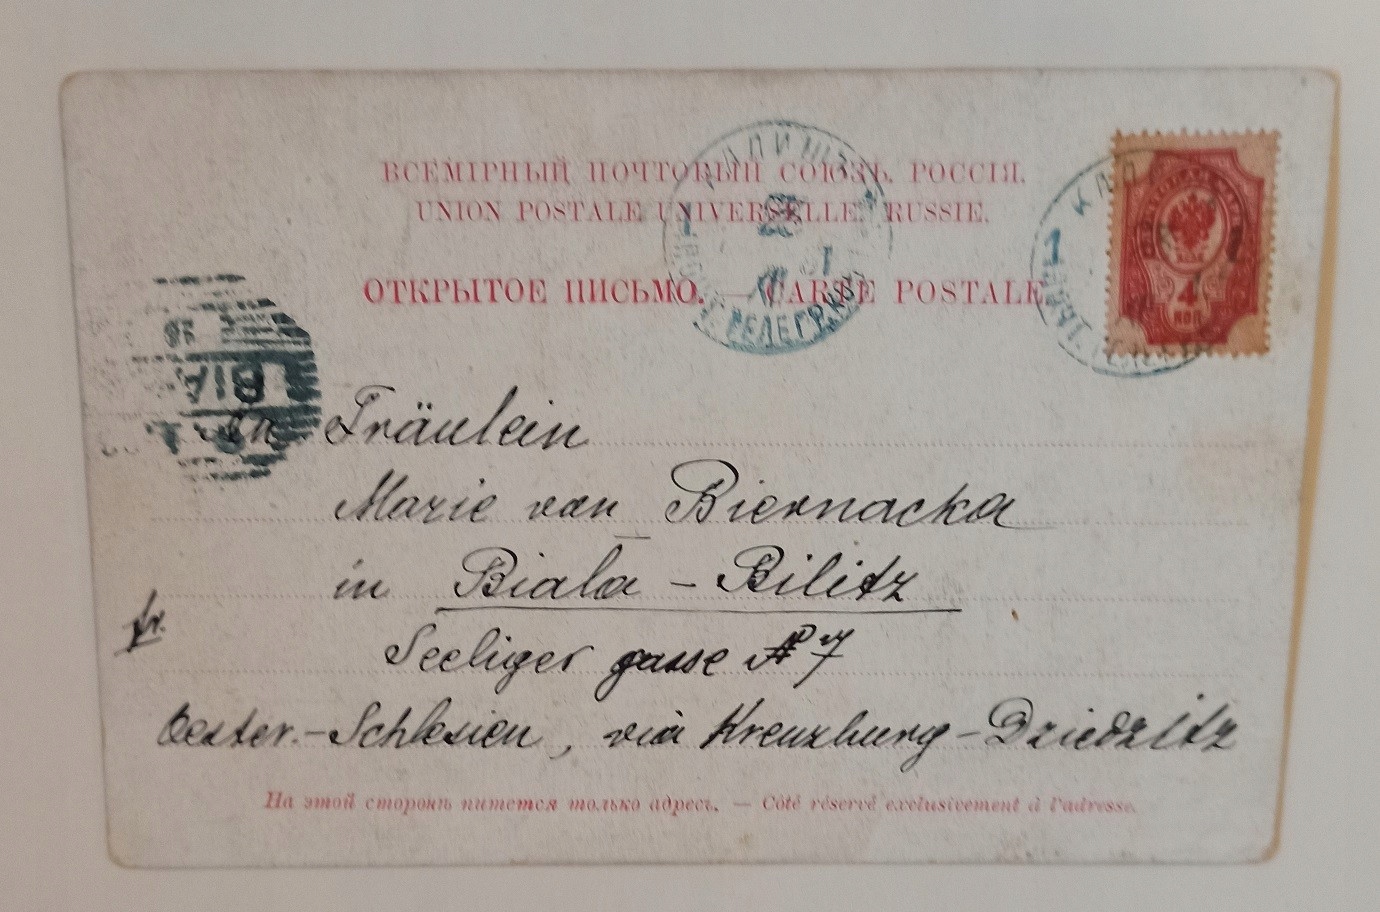 ВСЕМІРНЫЙ ПОЧТОВЫЙ СОЮЗЪ. РОССІЯ.
UNION POSTALE UNIVERSELLE. RUSSIE.
ОТКРЫТОЕ ПИСЬМО. — CARTE POSTALE
1
1
1
4
КОП
BIA
Fräulein
Marie van Biernacka
in Biala - Bilitz
fr.
Seeliger gasse № 7
Oester.-Schlesien, via Kreuzburg-Dziedzitz
На этой сторонѣ пишется только адресъ. — Côté réservé exclusivement à l'adresse.